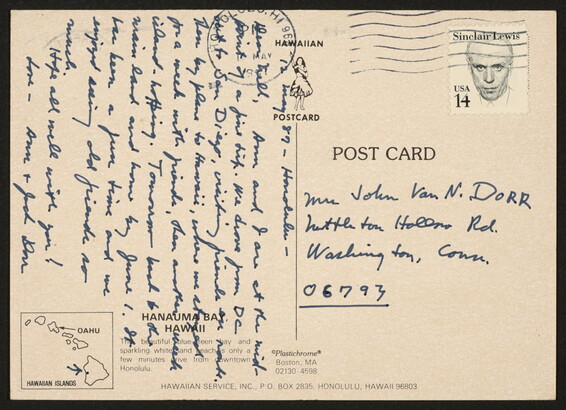 HONOLULU, HI 96
MAY
HAWAIIAN
POSTCARD
Sinclair Lewis
USA
14
12 May 87 – Honolulu –
Dear Nell, Ann and I are at the mid-
point of a fine trip. We drove from DC
to San Diego, visiting friends en route,
then by plane to Hawaii, where we stayed
for a week with friends, then another week
island-hopping. Tomorrow back to the
main land and home by June 1. It
has been a fine time and we
enjoyed seeing old friends so
much.
Hope all well with you!
Love – Ann & Dorr
POST CARD
Mrs John Van N. DORR
Nettleton Hollow Rd.
Washington, Conn.
06793
OAHU
HAWAIIAN ISLANDS
HANAUMA BAY
HAWAII
This beautiful blue-green bay and
sparkling white sand beach is only a
few minutes drive from downtown
Honolulu.
"Plastichrome"®
Boston, MA
02130-4598
HAWAIIAN SERVICE, INC., P.O. BOX 2835, HONOLULU, HAWAII 96803